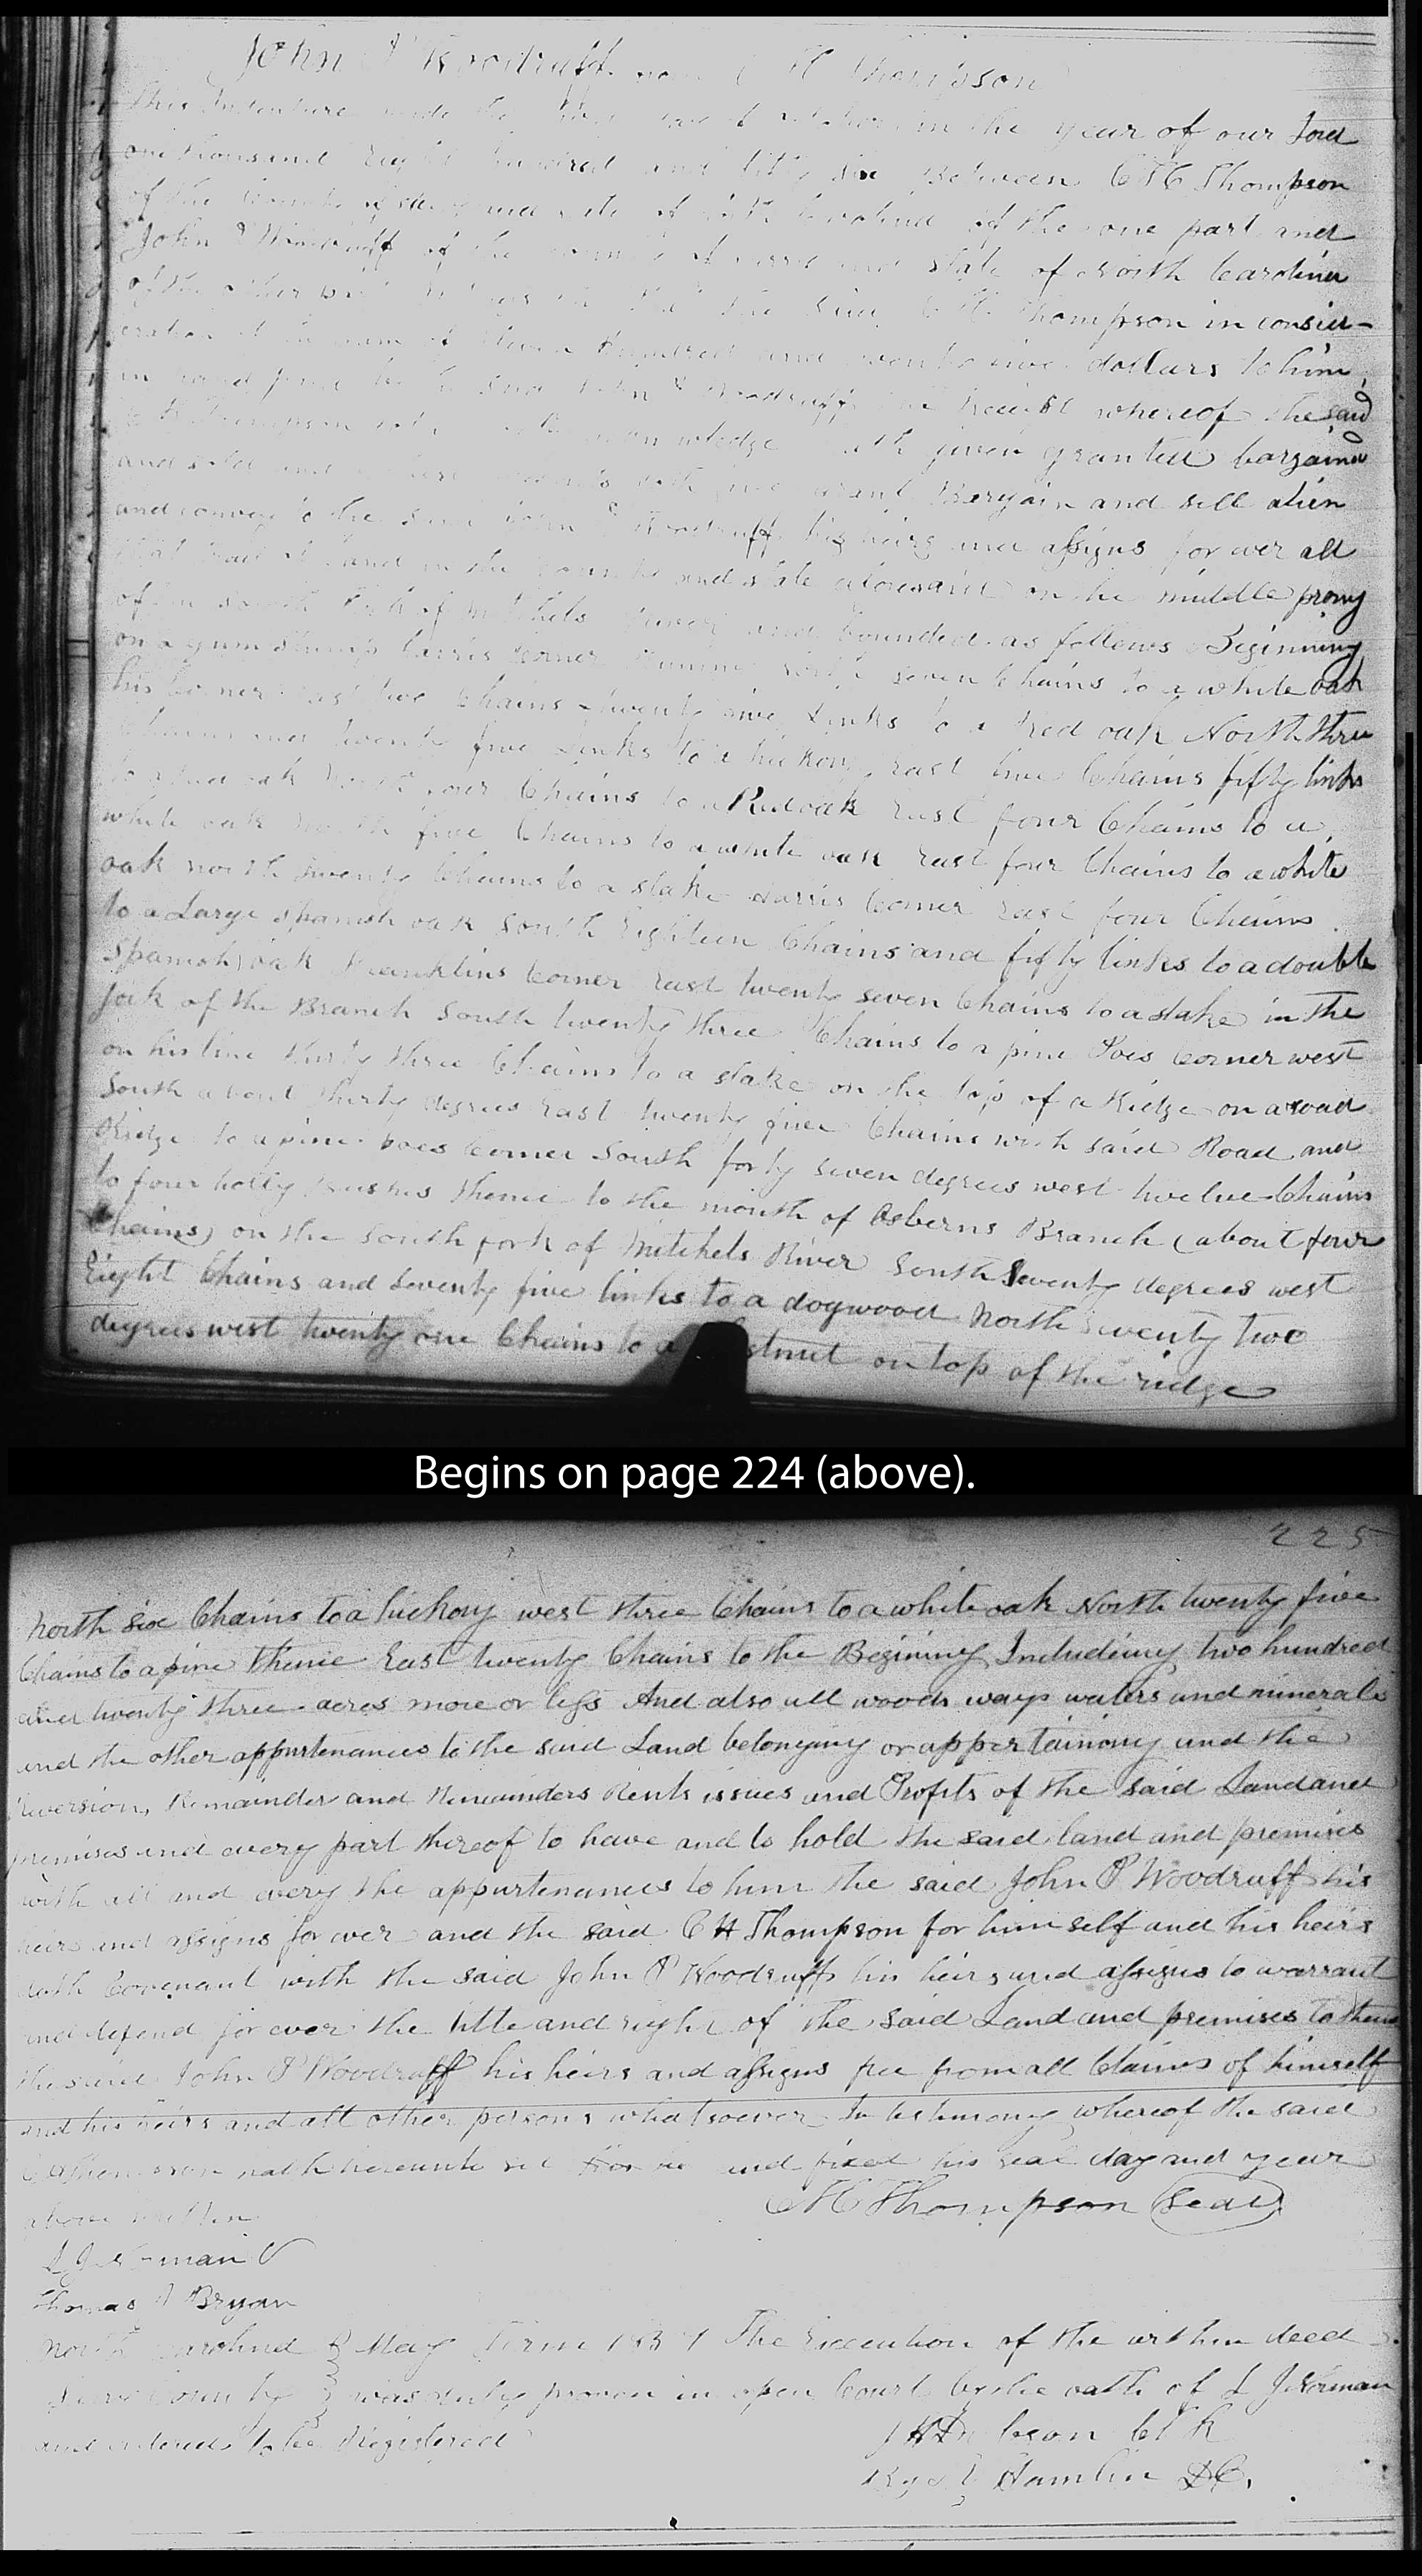 John P Woodruff from C H Thompson
This Indenture made the day of October in the year of our Lord
one thousand Eight hundred and fifty six Between C H Thompson
of the County of and state of North Carolina of the one part and
John P Woodruff of the County of and state of North Carolina
of the other part that the said C H Thompson in consid-
eration of the sum of hundred and twenty five dollars to him
in hand paid by the said John P Woodruff the Receipt whereof the said
C H Thompson acknowledge hath given granted bargaind
and sold and by these presents doth give grant Bargain and sell alien
and convey to the said John P Woodruff his heirs and assigns for ever all
that tract of land in the County and state aforesaid on the middle prong
of the South fork of Mitchels River and bounded as follows Begining
on a gum stump corner Runing North seven Chains to a white oak
his Corner East two Chains twenty five Links to a Red oak North three
Chains and twenty five Links to a hickory East five Chains fifty links
to a Red oak North four Chains to a Red oak East four Chains to a
white oak North five Chains to a white oak East four Chains to a white
oak north twenty Chains to a stake Harris Corner East four Chains
to a Large Spanish oak South Eighteen Chains and fifty links to a double
Spanish oak Franklins Corner East twenty seven Chains to a stake in the
fork of the Branch South twenty three Chains to a pine Corner west
on his line thirty three Chains to a stake on the top of a Ridge on a road
South about thirty degrees East twenty five Chains with said Road and
Ridge to a pine Corner South forty seven degrees west twelve Chains
to four holly bushes thence to the mouth of Osberns Branch (about four
Chains) on the South fork of Mitchels River South Seventy degrees west
Eight Chains and Seventy five links to a dogwood North Seventy two
degrees west twenty one Chains to a stnut on top of the ridge
Begins on page 224 (above).
225
North six Chains to a hickory west three Chains to a white oak North twenty five
Chains to a pine thence East twenty Chains to the Begining Including two hundred
and twenty three acres more or less And also all woods ways waters and minerals
and the other appurtenances to the said Land belonging or appertaining and the
Reversion, Remainder and Remainders Rents issues and Profits of the said Land and
premises and every part thereof to have and to hold the said land and premises
with all and every the appurtenances to him the said John P Woodruff his
heirs and assigns for ever and the said C H Thompson for him self and his heirs
doth Covenant with the said John P Woodruff his heirs and assigns to warrant
and defend for ever the title and right of the said Land and premises to them
the said John P Woodruff his heirs and assigns free from all Claims of himself
and his heirs and all other persons whatsoever In testimony whereof the said
C H Thompson hath hereunto set and fixed his seal day and year
above written
C H Thompson (Seal)
L J Norman
Thomas Bryan
North Carolina } May Term 1857 The Execution of the within deed
Surry County } was duly proven in open Court by the oath of L J Norman
and ordered to be Registered
Clk
Hamlin DC,